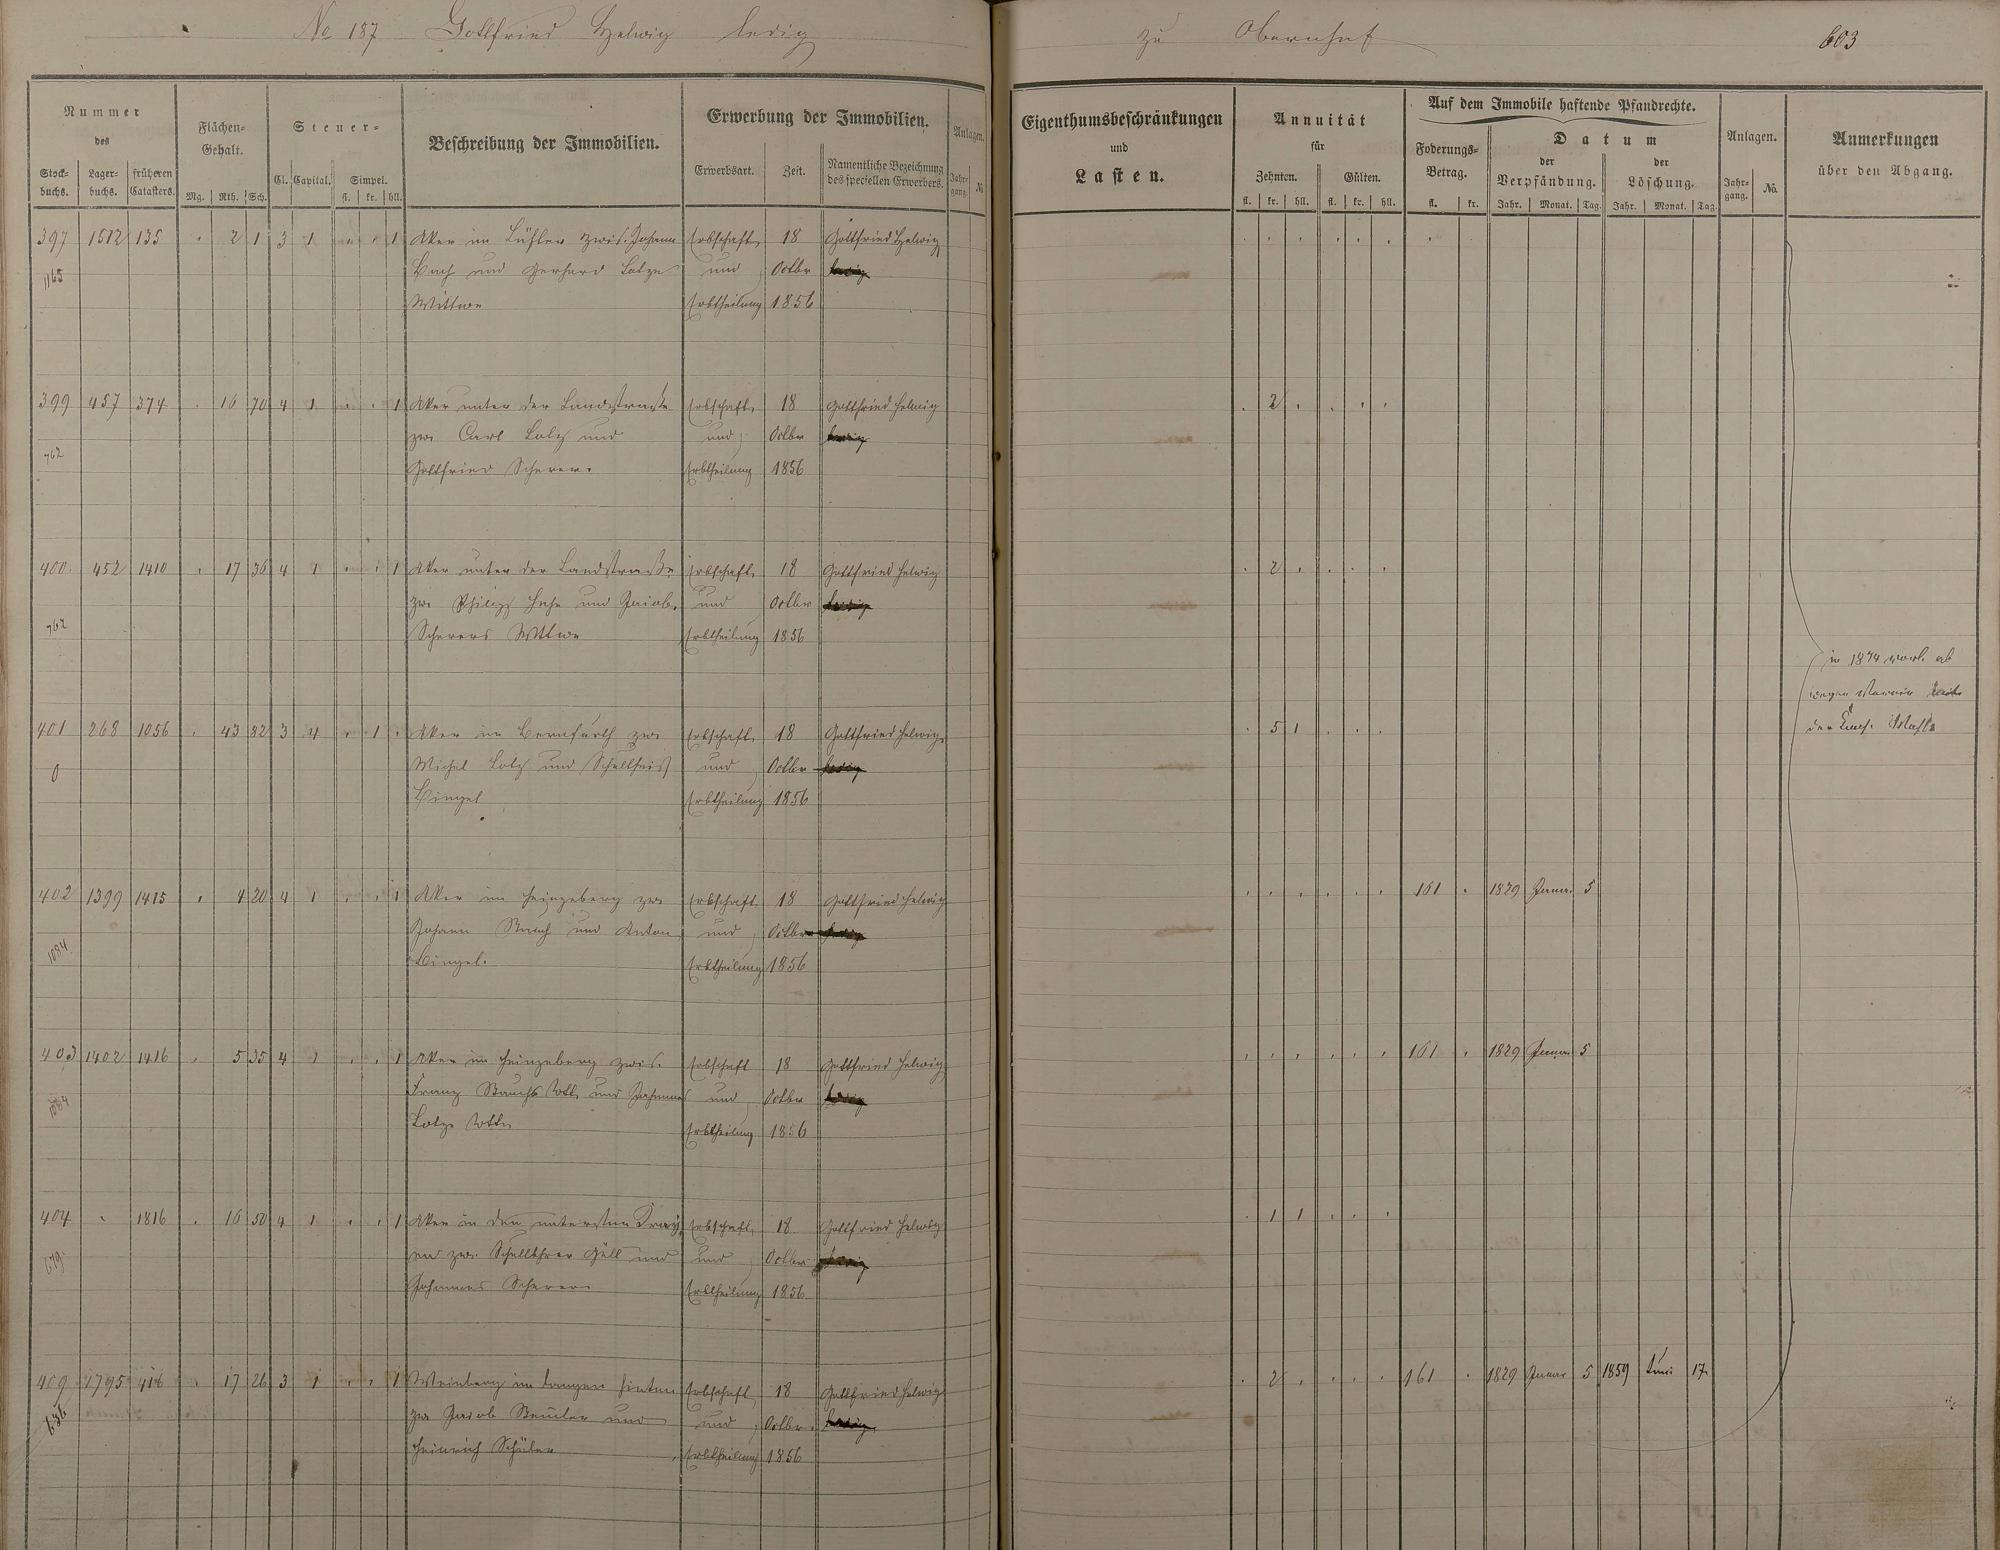 No 187 Gottfried Helwig ledig
zu Obernhof
603
Nummer
des
Stock-
buchs.
Lager-
buchs.
früheren
Catasters.
Flächen-
Gehalt.
Mg. Rth. Sch.
Steuer-
Cl. Capital. Simpel.
fl. kr. hll.
Beschreibung der Immobilien.
Erwerbung der Immobilien.
Erwerbsart. Zeit. Namentliche Bezeichnung
des speciellen Erwerbers.
Anlagen.
Jahr-
gang. №
Eigenthumsbeschränkungen
und
Lasten.
Annuität
für
Zehnten. Gülten.
fl. kr. hll. fl. kr. hll.
Auf dem Immobile haftende Pfandrechte.
Foderungs-
Betrag.
fl. kr.
Datum
der
Verpfändung.
Jahr. Monat. Tag.
der
Löschung.
Jahr. Monat. Tag.
Anlagen.
Jahr-
gang. No.
Anmerkungen
über den Abgang.
397 1512 135 2 1 3 1 1 Aker im zwis. Johann Erbschaft 18 Gottfried Helwig
1165 Bach und Gerhard Lotze und Octbr ledig
Wittwe Erbtheilung 1856
399 457 374 16 70 4 1 1 Aker unter der Landstraße Erbschaft 18 Gottfried Helwig 2
762 zw. Carl Lotz und und Octbr ledig
Gottfried Scherer. Erbtheilung 1856
400 452 1410 17 36 4 1 1 Aker unter der Landstraße Erbschaft 18 Gottfried Helwig 2
762 zw. Philipp und Jacob und Octbr ledig
Scherers Wttwe Erbtheilung 1856
in 1874 ab
wegen
der
401 268 1056 43 82 3 4 1 Aker im zw. Erbschaft 18 Gottfried Helwig 5 1
0 Michel Lotz und Schultheis und Octbr ledig
Bingel Erbtheilung 1856
402 1399 1415 4 20 4 1 1 Aker im Heinzeberg zw. Erbschaft 18 Gottfried Helwig 161 1829 Januar 5
1084 Johann und Anton und Octbr ledig
Bingel. Erbtheilung 1856
403 1402 1416 5 35 4 1 1 Aker im Heinzeberg zwis. Erbschaft 18 Gottfried Helwig 161 1829 Januar 5
1084 Franz Wtt. und Johannes und Octbr ledig
Lotze Wttw Erbtheilung 1856
404 1816 16 50 4 1 1 Aker in den untersten Erbschaft 18 Gottfried Helwig 1 1
679 zw. und und Octbr ledig
Johannes Scherer. Erbtheilung 1856
409 1795 416 17 26 3 1 1 Weinberg im langen Erbschaft 18 Gottfried Helwig 2 161 1829 Januar 5 1859 Juni 17
636 zw. Jacob und und Octbr. ledig
Heinrich Schüler Erbtheilung 1856